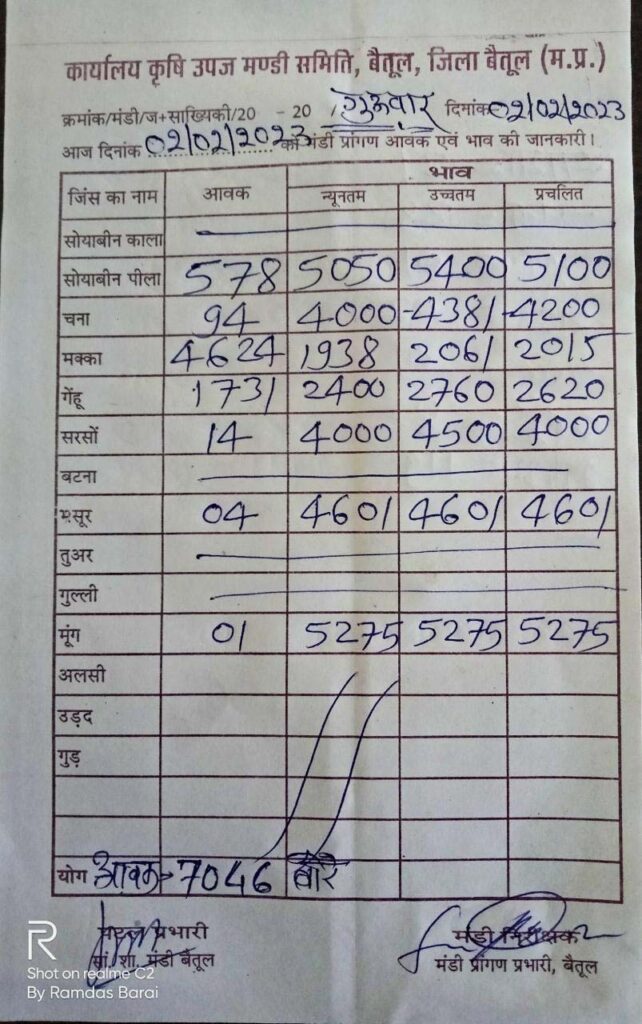 कार्यालय कृषि उपज मण्डी समिति, बैतूल, जिला बैतूल (म.प्र.)
क्रमांक/मंडी/ज+साख्यिकी/20 - 20 / शुक्रवार दिनांक 02/02/2023
आज दिनांक 02/02/2023 को मंडी प्रांगण आवक एवं भाव की जानकारी।
जिंस का नाम आवक भाव
न्यूनतम उच्चतम प्रचलित
सोयाबीन काला
सोयाबीन पीला 578 5050 5400 5100
चना 94 4000 4381 4200
मक्का 4624 1938 2061 2015
गेंहू 1731 2400 2760 2620
सरसों 14 4000 4500 4000
बटना
मसूर 04 4601 4601 4601
तुअर
गुल्ली
मूंग 01 5275 5275 5275
अलसी
उड़द
गुड़
योग आवक 7046 बोरे
प्रभारी मंडी निरीक्षक
सां. शा. मंडी बैतूल मंडी प्रांगण प्रभारी, बैतूल
R
Shot on realme C2
By Ramdas Barai